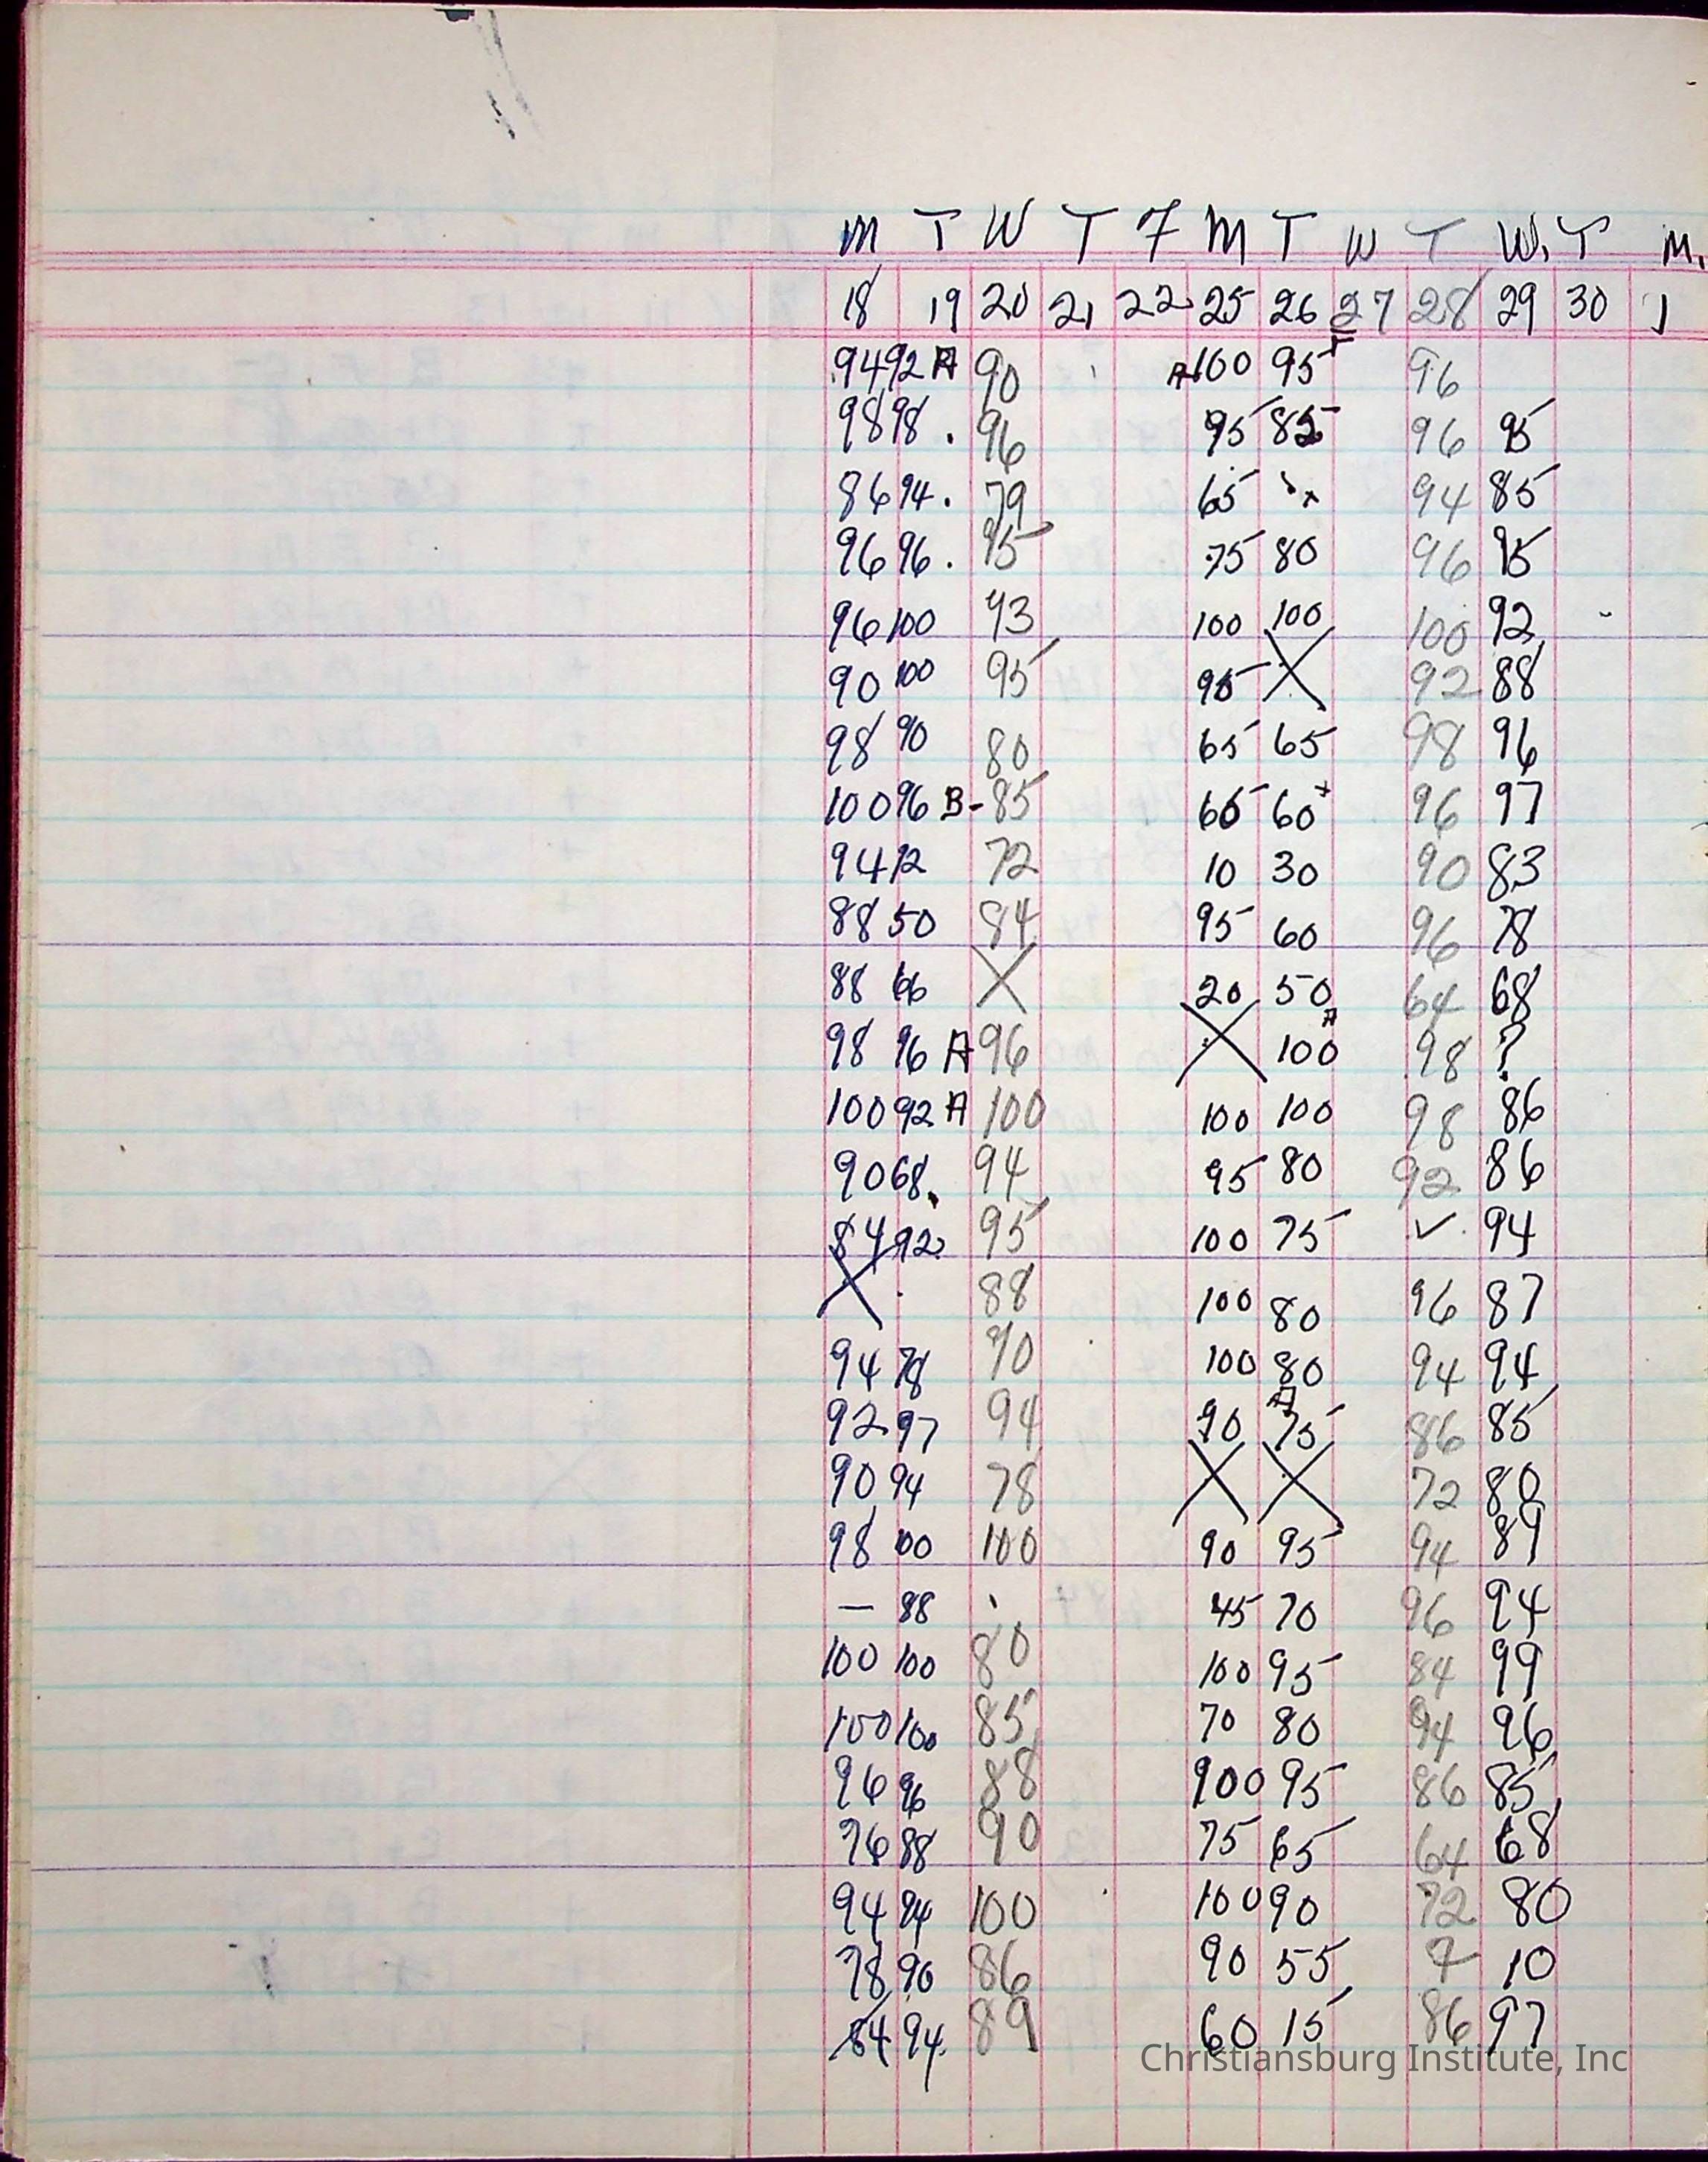 M T W T F M T W T W. T M.
18 19 20 21 22 25 26 27 28 29 30 1
94 92 A 90 A 100 95 + 96
98 98 . 96 95 85 96 95
86 94 . 79 65 94 85
96 96 . 95 75 80 96 95
96 100 93 100 100 100 92
90 100 95 95 X 92 88
98 90 80 65 65 98 96
100 96 B- 85 65 60+ 96 97
94 72 10 30 90 83
88 50 84 95 60 96 78
88 66 X 20 50 64 68
98 96 A 96 X 100 A 98 ?
100 92 A 100 100 100 98 86
90 68. 94 95 80 92 86
84 92 95 100 75 ✓ 94
X 88 100 80 96 87
94 78 90 100 80 94 94
92 97 94 90 A 75 86 85
90 94 78 X X 72 80
98 100 100 90 95 94 89
— 88 45 70 96 94
100 100 80 100 95 84 99
100 100 85 70 80 94 96
96 96 88 100 95 86 85
76 88 90 75 65 64 68
94 94 100 100 90 72 80
78 90 86 90 55 10
84 94. 89 60 15 86 97
Christiansburg Institute, Inc